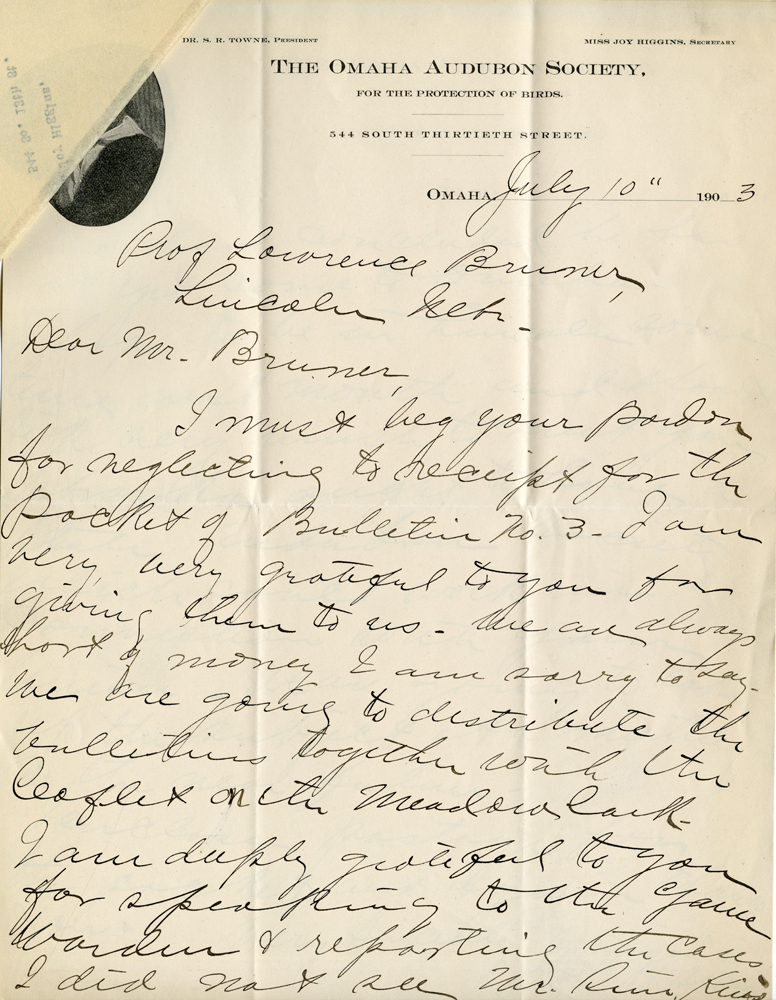 DR. S. R. TOWNE, PRESIDENT
MISS JOY HIGGINS, SECRETARY
THE OMAHA AUDUBON SOCIETY,
FOR THE PROTECTION OF BIRDS.
544 SOUTH THIRTIETH STREET.
OMAHA, July 10" 1903
Prof Lawrence Bruner,
Lincoln Nebr-
Dear Mr. Bruner,
I must beg your pardon
for neglecting to receipt for the
packet of Bulletin No. 3- I am
very, very grateful to you for
giving them to us- We are always
short of money I am sorry to say-
We are going to distribute the
bulletins together with the
leaflet on the Meadow lark-
I am deeply grateful to you
for speaking to the Game
Warden & reporting the cases
I did not see Mr.